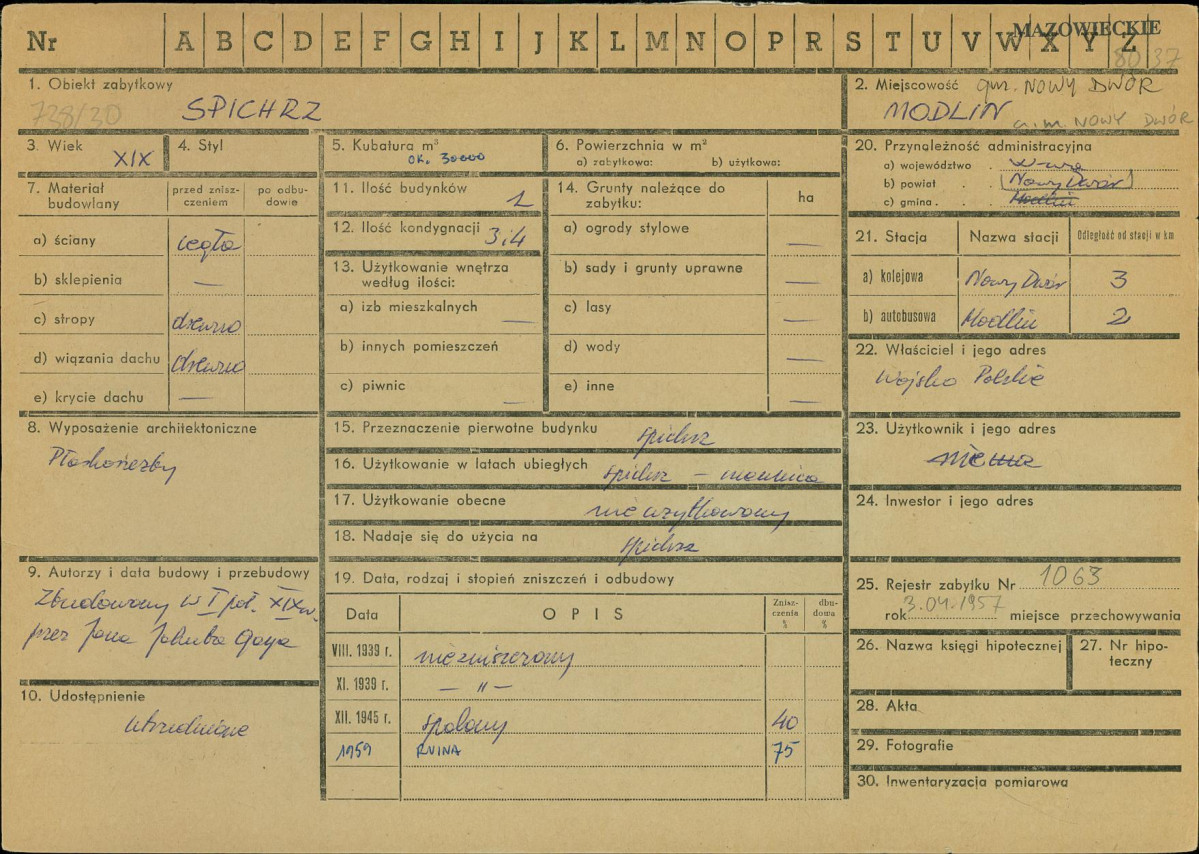 Nr A B C D E F G H I J K L M N O P R S T U V W X Y Z
MAZOWIECKIE
80 37
1. Obiekt zabytkowy
738/30
SPICHRZ
2. Miejscowość gm. NOWY DWÓR
MODLIN
a.m. NOWY DWÓR
3. Wiek
XIX
4. Styl
5. Kubatura m³
ok. 30000
6. Powierzchnia w m²
a) zabytkowa: b) użytkowa:
20. Przynależność administracyjna
a) województwo W-wa
b) powiat (Nowy Dwór)
c) gmina Modlin
7. Materiał budowlany
przed zniszczeniem
po odbudowie
a) ściany cegła
b) sklepienia —
c) stropy drewno
d) wiązania dachu drewno
e) krycie dachu —
8. Wyposażenie architektoniczne
Płaskorzeźby
9. Autorzy i data budowy i przebudowy
Zbudowany w I poł. XIX w.
przez Jana Jakuba Gaya
10. Udostępnienie
utrudnione
11. Ilość budynków 1
12. Ilość kondygnacji 3 i 4
13. Użytkowanie wnętrza
według ilości:
a) izb mieszkalnych —
b) innych pomieszczeń
c) piwnic —
14. Grunty należące do
zabytku:
ha
a) ogrody stylowe —
b) sady i grunty uprawne —
c) lasy —
d) wody —
e) inne —
15. Przeznaczenie pierwotne budynku spichrz
16. Użytkowanie w latach ubiegłych spichrz –
17. Użytkowanie obecne nieużytkowany
18. Nadaje się do użycia na spichrz
19. Data, rodzaj i stopień zniszczeń i odbudowy
Data OPIS Zniszczenia % dbudowa %
VIII. 1939 r. niezniszczony
XI. 1939 r. — " —
XII. 1945 r. spalony 40
1959 RUINA 75
21. Stacja Nazwa stacji Odległość od stacji w km
a) kolejowa Nowy Dwór 3
b) autobusowa Modlin 2
22. Właściciel i jego adres
Wojsko Polskie
23. Użytkownik i jego adres
nie ma
24. Inwestor i jego adres
25. Rejestr zabytku Nr 1063
rok 3.04.1957 miejsce przechowywania
26. Nazwa księgi hipotecznej
27. Nr hipoteczny
28. Akta
29. Fotografie
30. Inwentaryzacja pomiarowa